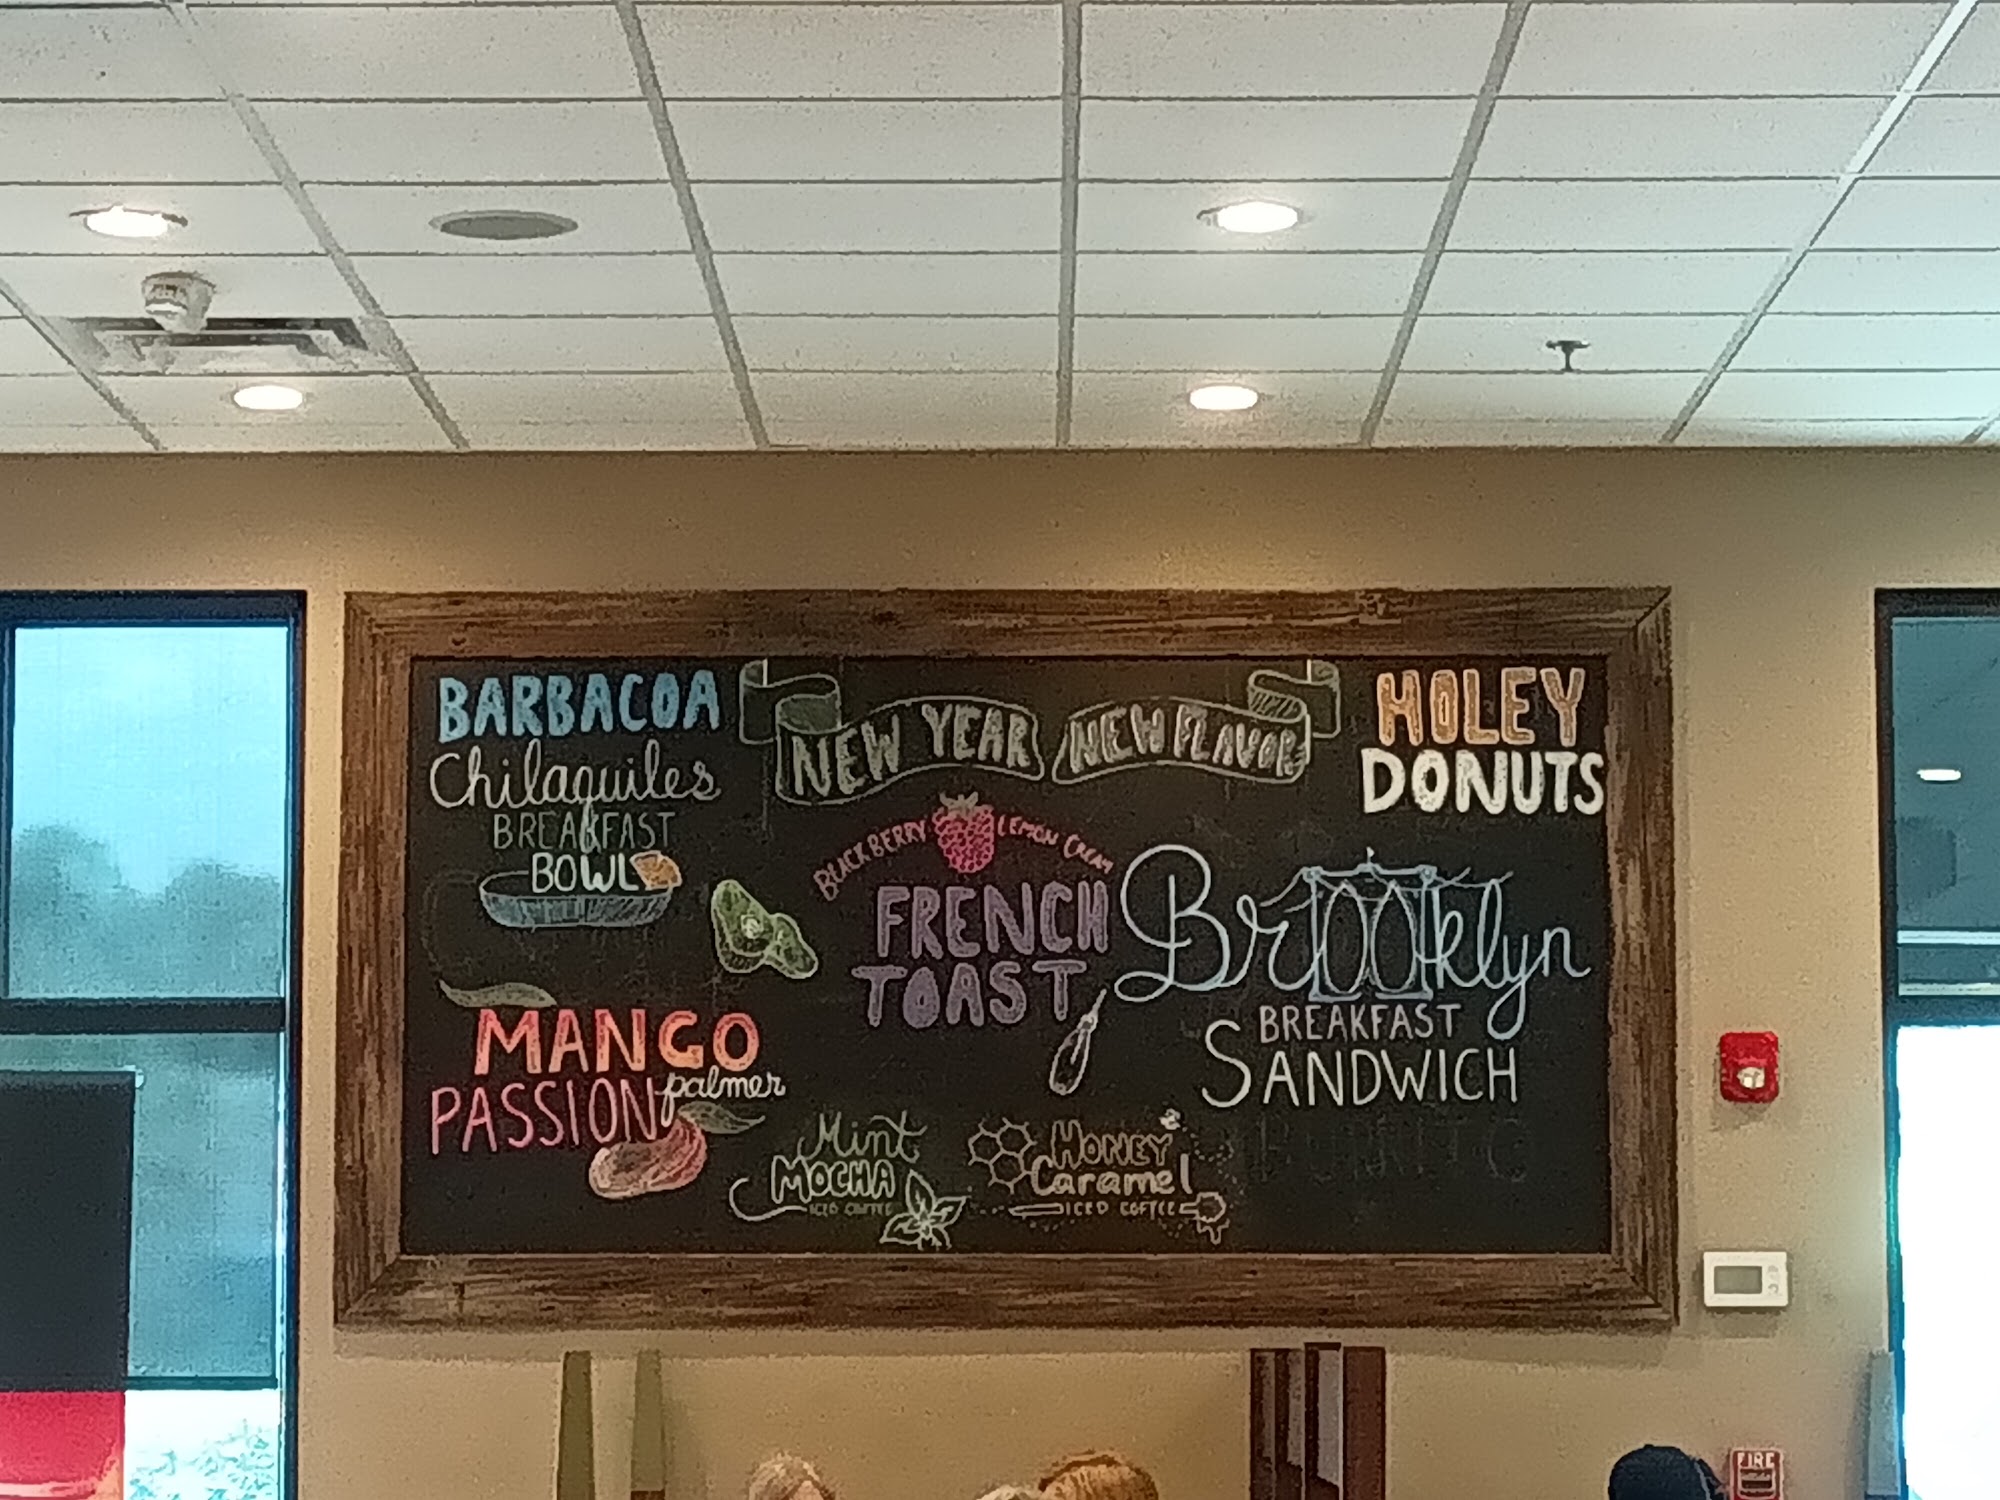 BARBACOA
Chilaquiles
BREAKFAST
BOWL
NEW YEAR NEW FLAVOR
HOLEY
DONUTS
BLACKBERRY LEMON CREAM
FRENCH
TOAST
Brooklyn
BREAKFAST
SANDWICH
MANGO
PASSION palmer
Mint
MOCHA
ICED COFFEE
HONEY
Caramel
ICED COFFEE
FIRE